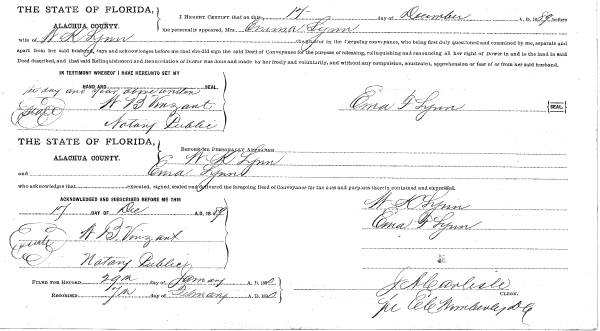 THE STATE OF FLORIDA,
ALACHUA COUNTY.
I HEREBY CERTIFY that on this 17 day of December A. D. 1889 before
me personally appeared, Mrs. Emma Lynn
wife of W K Lynn the grantor in the foregoing conveyance, who being first duly questioned and examined by me, separate and
apart from her said husband, says and acknowledges before me that she did sign the said Deed of Conveyance for the purpose of releasing, relinquishing and renouncing all her right of Dower in and to the land in said
Deed described, and that said Relinquishment and Renunciation of Dower was done and made by her freely and voluntarily, and without any compulsion, constraint, apprehension or fear of or from her said husband.
IN TESTIMONY WHEREOF I HAVE HEREUNTO SET MY
HAND AND SEAL
day and year above written
Seal W B Vinzant
Notary Public
Ema F Lynn SEAL
THE STATE OF FLORIDA,
ALACHUA COUNTY.
BEFORE ME PERSONALLY APPEARED
W K Lynn
and Ema Lynn
who acknowledges that executed, signed, sealed and delivered the foregoing Deed of Conveyance for the uses and purposes therein contained and expressed.
ACKNOWLEDGED AND SUBSCRIBED BEFORE ME THIS
17 DAY OF Dec A.D. 1889
W K Lynn
Ema F Lynn
Seal W B Vinzant
Notary Public
FILED FOR RECORD 29th day of January A. D. 1890
RECORDED day of February A. D. 1890
J A Carlisle
CLERK.
per Wimberley D C